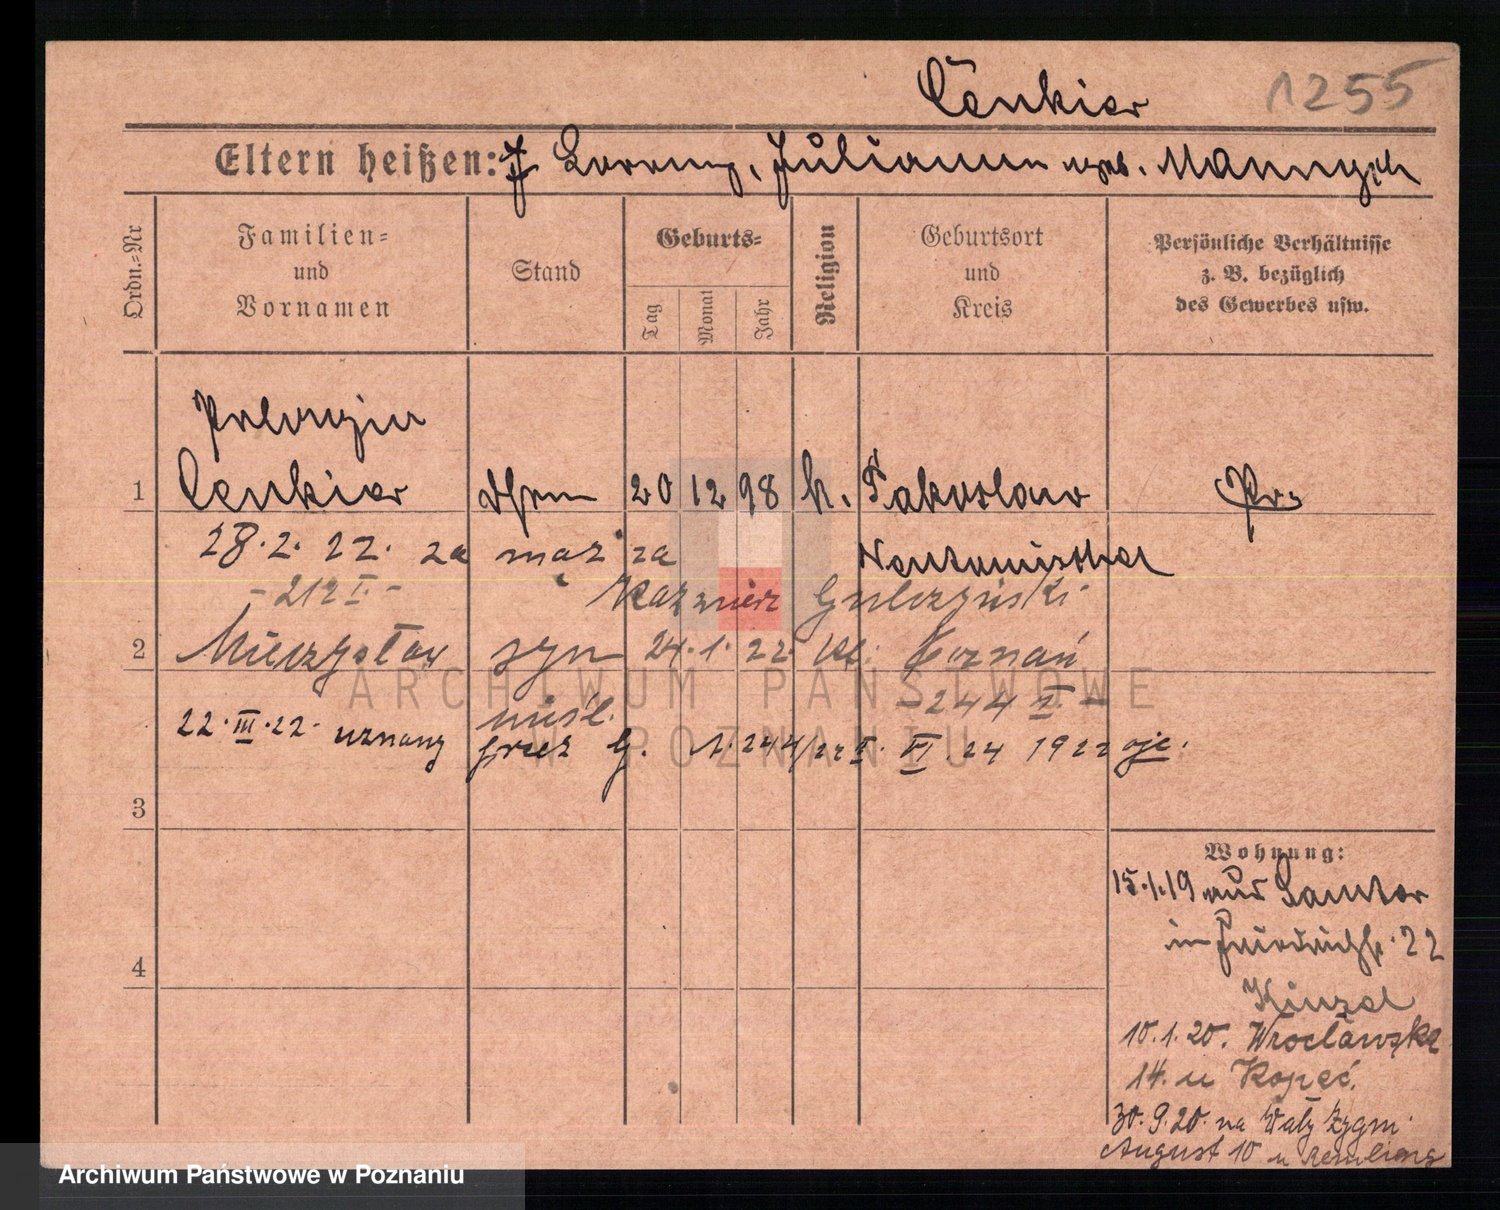 Cenkier 1255
Eltern heißen: Lorenz, Julianna geb.
Ordn.-Nr
Familien-
und
Vornamen
Stand
Geburts-
Tag
Monat
Jahr
Religion
Geburtsort
und
Kreis
Persönliche Verhältnisse
z. B. bezüglich
des Gewerbes usw.
Pelonzia
1 Cenkier 20 12 98 k. Pakoslaw Pr.
28.2.22. za mąż za Neutomischel
-212 I- Kaźmierz Gulczyński
2 Mieczysław syn 24.1.22. kt. Poznań
nieśl. -244 I-
22.III.22. uznany przez G. 244/22 I. VI 24 1922
3
4
Wohnung:
15.1.19 aus Samter
in Friedrichstr. 22
Kinzel
10.1.20. Wrocławska
14. u Kopeć.
30.9.20. na Wały Zygm.
August 10 u
ARCHIWUM PAŃSTWOWE
W POZNANIU
Archiwum Państwowe w Poznaniu